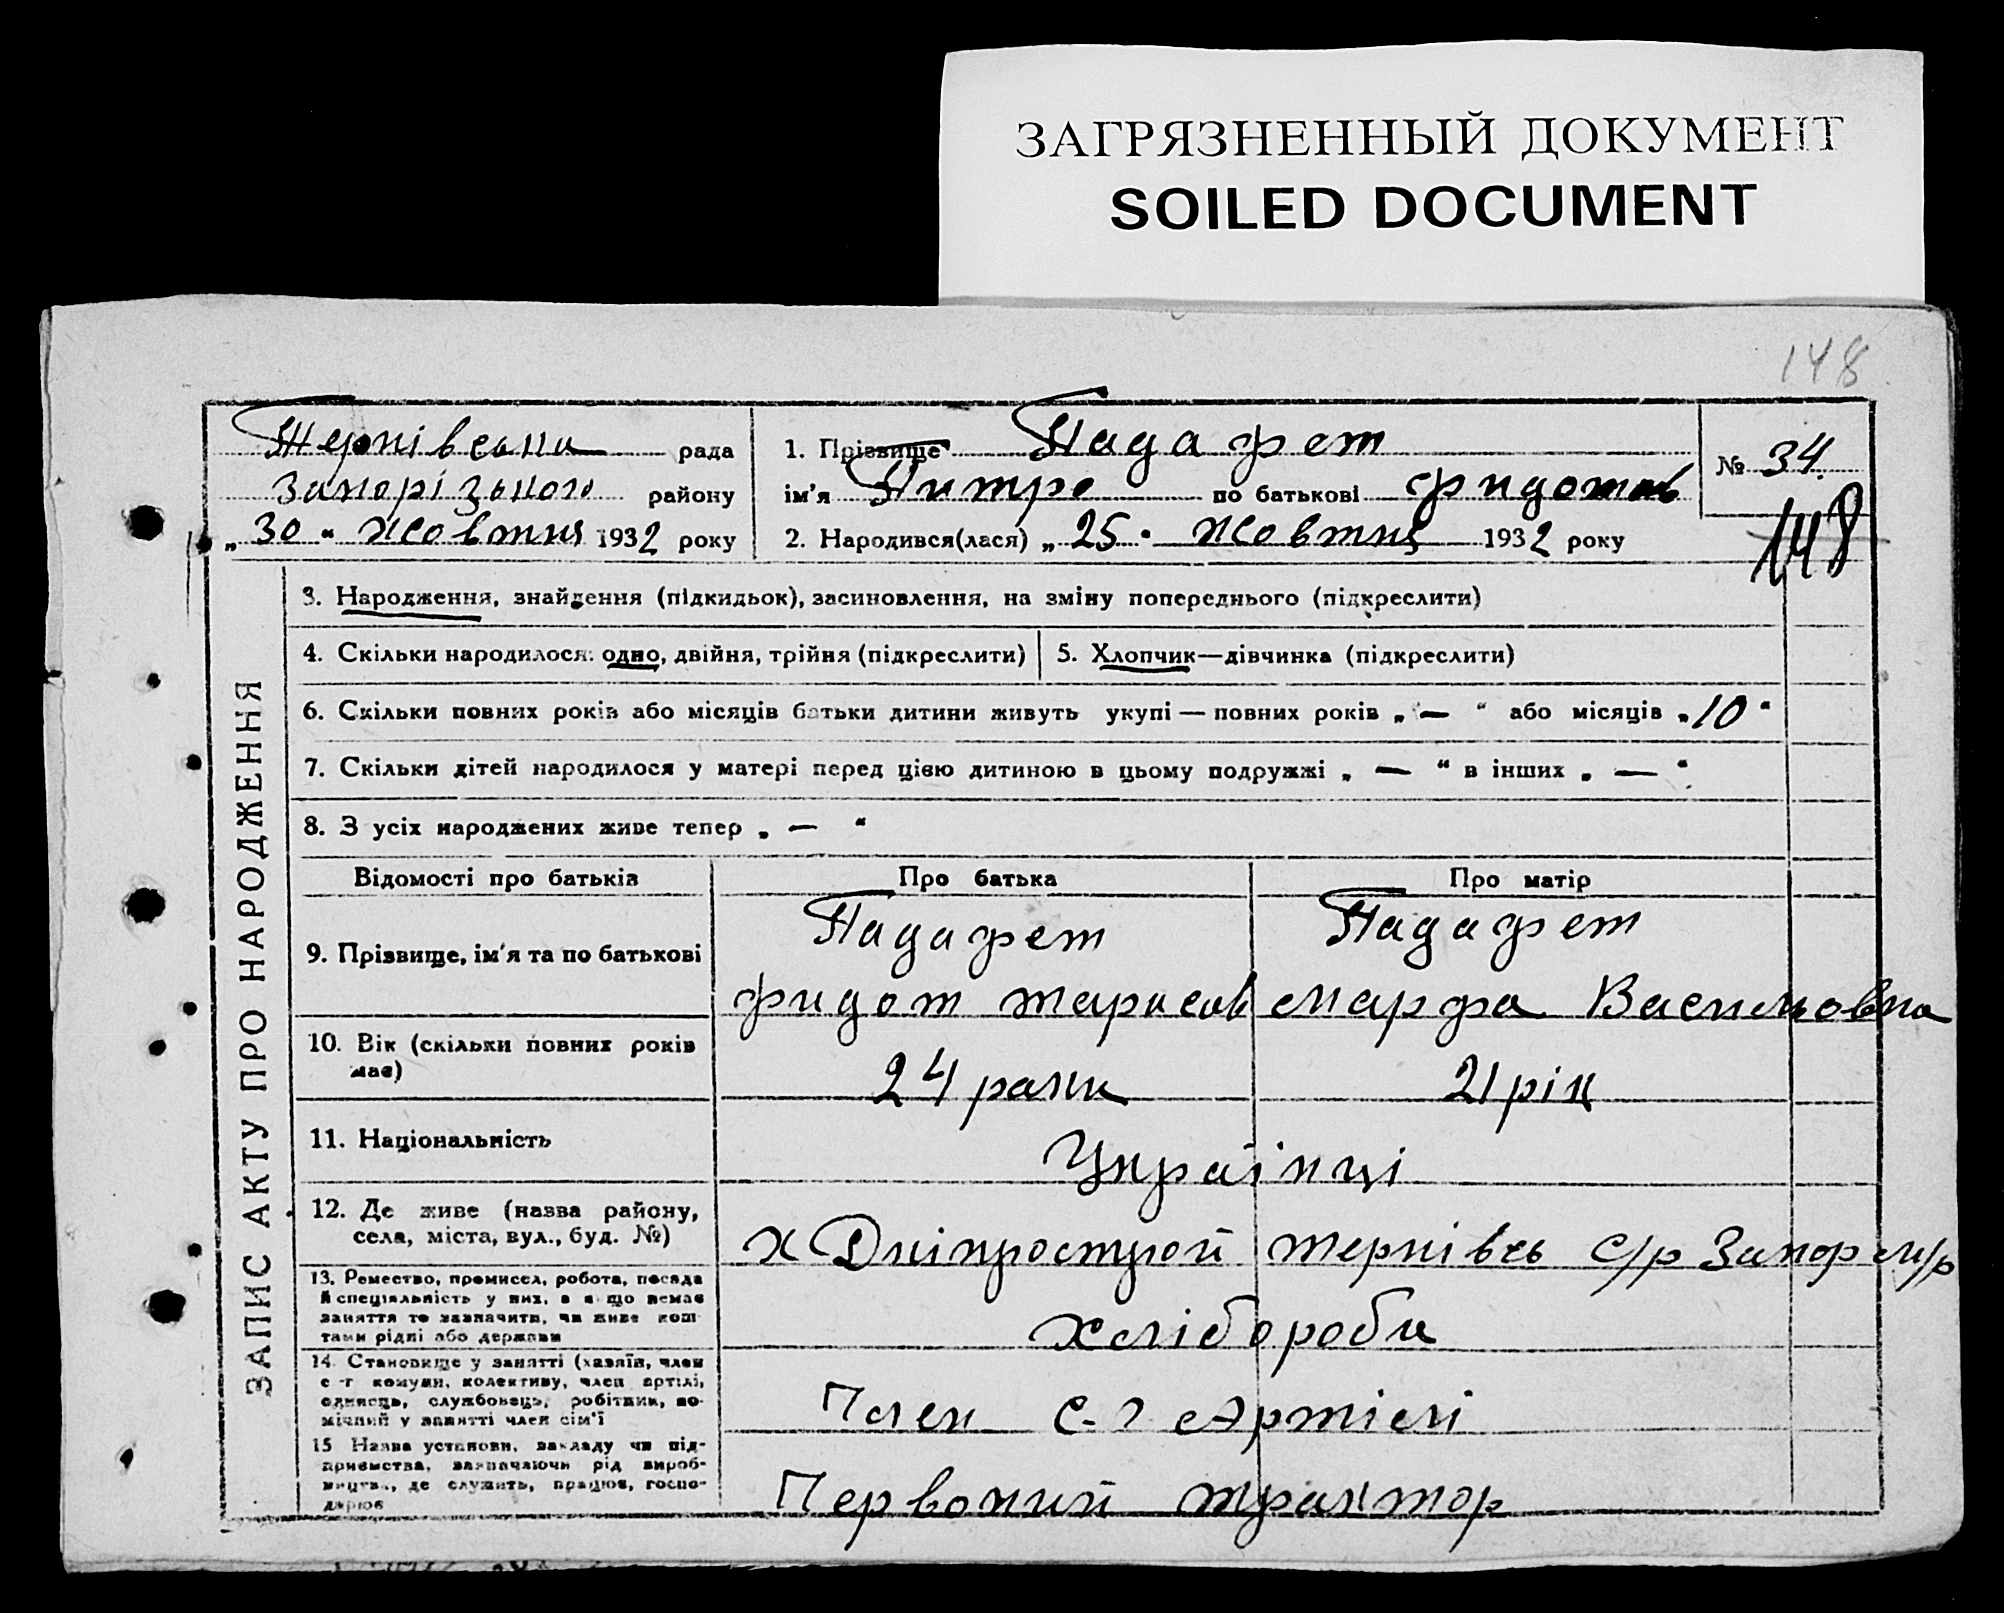 ЗАГРЯЗНЕННЫЙ ДОКУМЕНТ
SOILED DOCUMENT
148
Тернівська рада
Запорізького району
„30“ жовтня 1932 року
1. Прізвище Падафет
ім'я Питро по батькові Фидотов
2. Народився(лася) „25“ жовтня 1932 року
№ 34
148
ЗАПИС АКТУ ПРО НАРОДЖЕННЯ
3. Народження, знайдення (підкидьок), засиновлення, на зміну попереднього (підкреслити)
4. Скільки народилося: одно, двійня, трійня (підкреслити)
5. Хлопчик—дівчинка (підкреслити)
6. Скільки повних років або місяців батьки дитини живуть укупі — повних років „—“ або місяців „10“
7. Скільки дітей народилося у матері перед цією дитиною в цьому подружжі „—“ в інших „—“
8. З усіх народжених живе тепер „—“
Відомості про батьків
Про батька
Про матір
9. Прізвище, ім'я та по батькові
Падафет
Фидот Тарасов
Падафет
Марфа Васильовна
10. Вік (скільки повних років має)
24 роки
21 рік
11. Національність
Українці
12. Де живе (назва району,
села, міста, вул., буд. №)
х Дніпрострой Тернівсь с/р Запор м/р
13. Ремество, промисел, робота, посада
й спеціяльність у них, а якщо немає
заняття то зазначити, чи живе кош-
тами рідні або держави
Хлібороби
14. Становище у занятті (хазяїн, член
с-г комуни, колективу, член артілі,
одинець, службовець, робітник, по-
мічний у занятті член сім'ї
Член с-г Артілі
15 Назва установи, закладу чи під-
приємства, зазначаючи рід вироб-
ництва, де служить, працює, госпо-
дарює
Первоний трактор